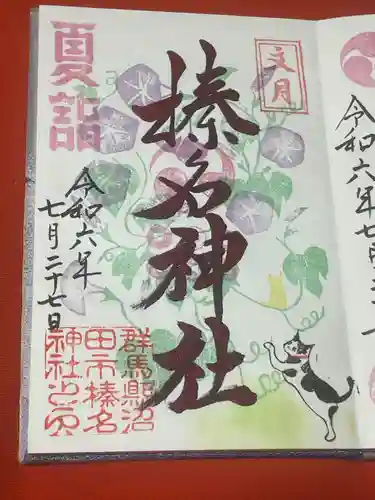 夏詣
文月
榛名神社
令和六年
七月二十七日
群馬県沼
田市榛名
神社之印
令和六年七月二